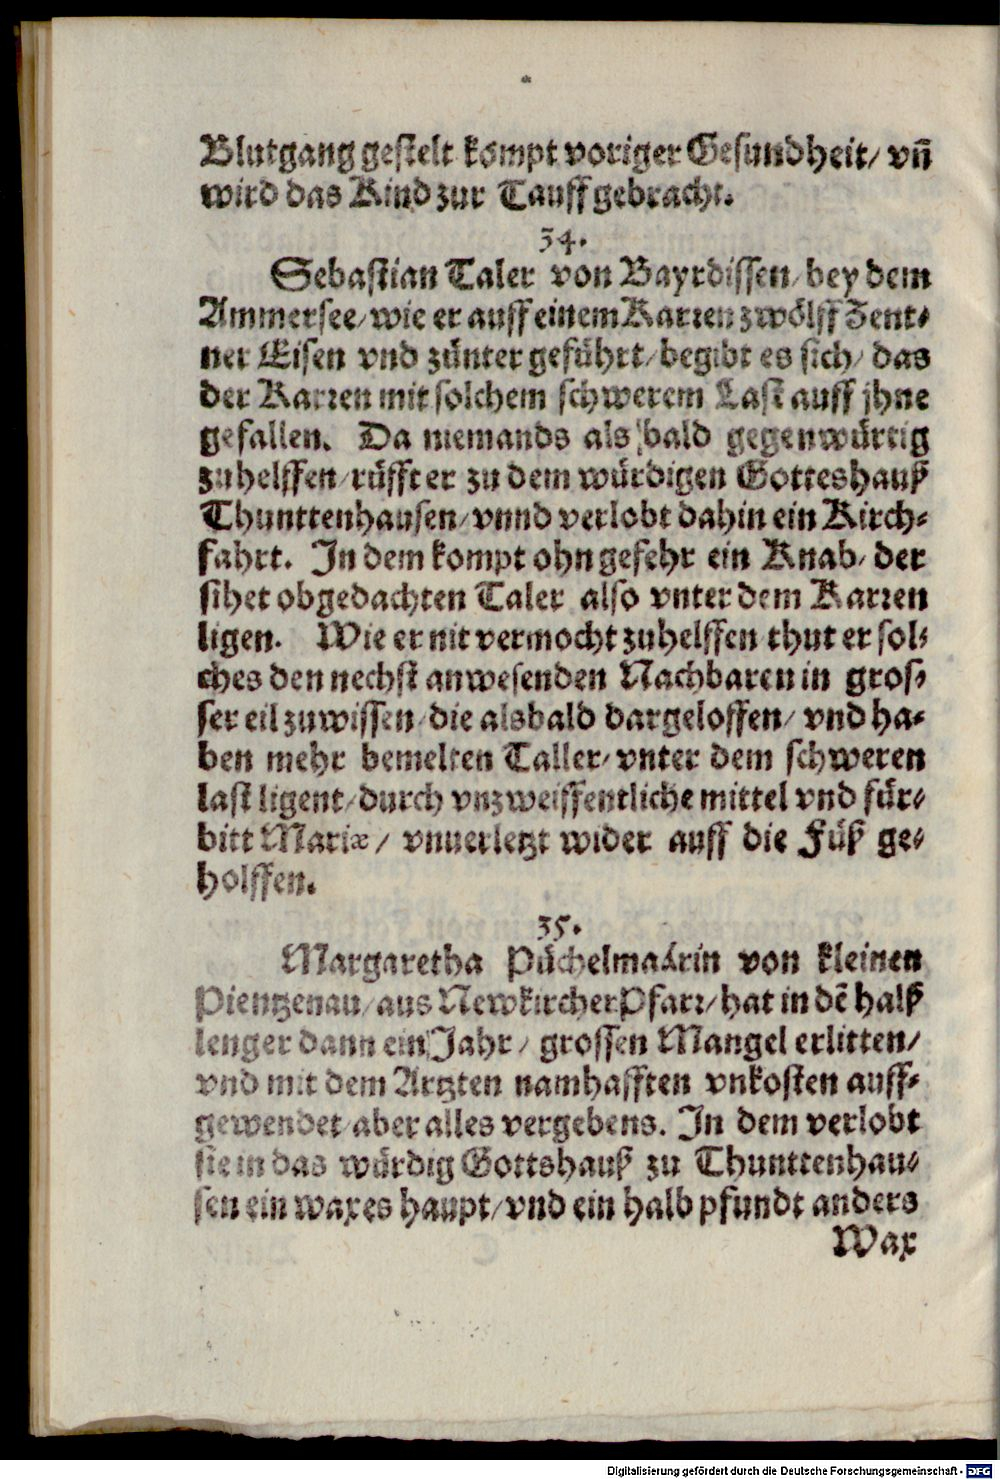 Blutgang gestelt kompt voriger Gesundheit/ vñ
wird das Kind zur Tauff gebracht.
34.
Sebastian Taler von Bayrdissen/ bey dem
Ammersee/ wie er auff einem Karren zwölff Zent-
ner Eisen vnd zünter geführt/ begibt es sich/ das
der Karren mit solchem schwerem Last auff jhne
gefallen. Da niemands als bald gegenwürtig
zuhelffen/ rüfft er zu dem würdigen Gotteshauß
Thunttenhausen/ vnnd verlobt dahin ein Kirch-
fahrt. In dem kompt ohn gefehr ein Knab/ der
sihet obgedachten Taler also vnter dem Karren
ligen. Wie er nit vermocht zuhelffen thut er sol-
ches den nechst anwesenden Nachbaren in gros-
ser eil zuwissen/ die alsbald dargeloffen/ vnd ha-
ben mehr bemelten Taller/ vnter dem schweren
last ligent/ durch vnzweiffentliche mittel vnd für-
bitt Mariæ/ vnuerletzt wider auff die Füß ge-
holffen.
35.
Margaretha Püchelmaärin von kleinen
Pientzenau/ aus Newkircher Pfarr/ hat in dẽ halß
lenger dann ein Jahr/ grossen Mangel erlitten/
vnd mit dem Artzten namhafften vnkosten auff-
gewendet/ aber alles vergebens. In dem verlobt
sie in das würdig Gottshauß zu Thunttenhau-
sen ein waxes haupt/ vnd ein halb pfundt anders
Wax
Digitalisierung gefördert durch die Deutsche Forschungsgemeinschaft - DFG